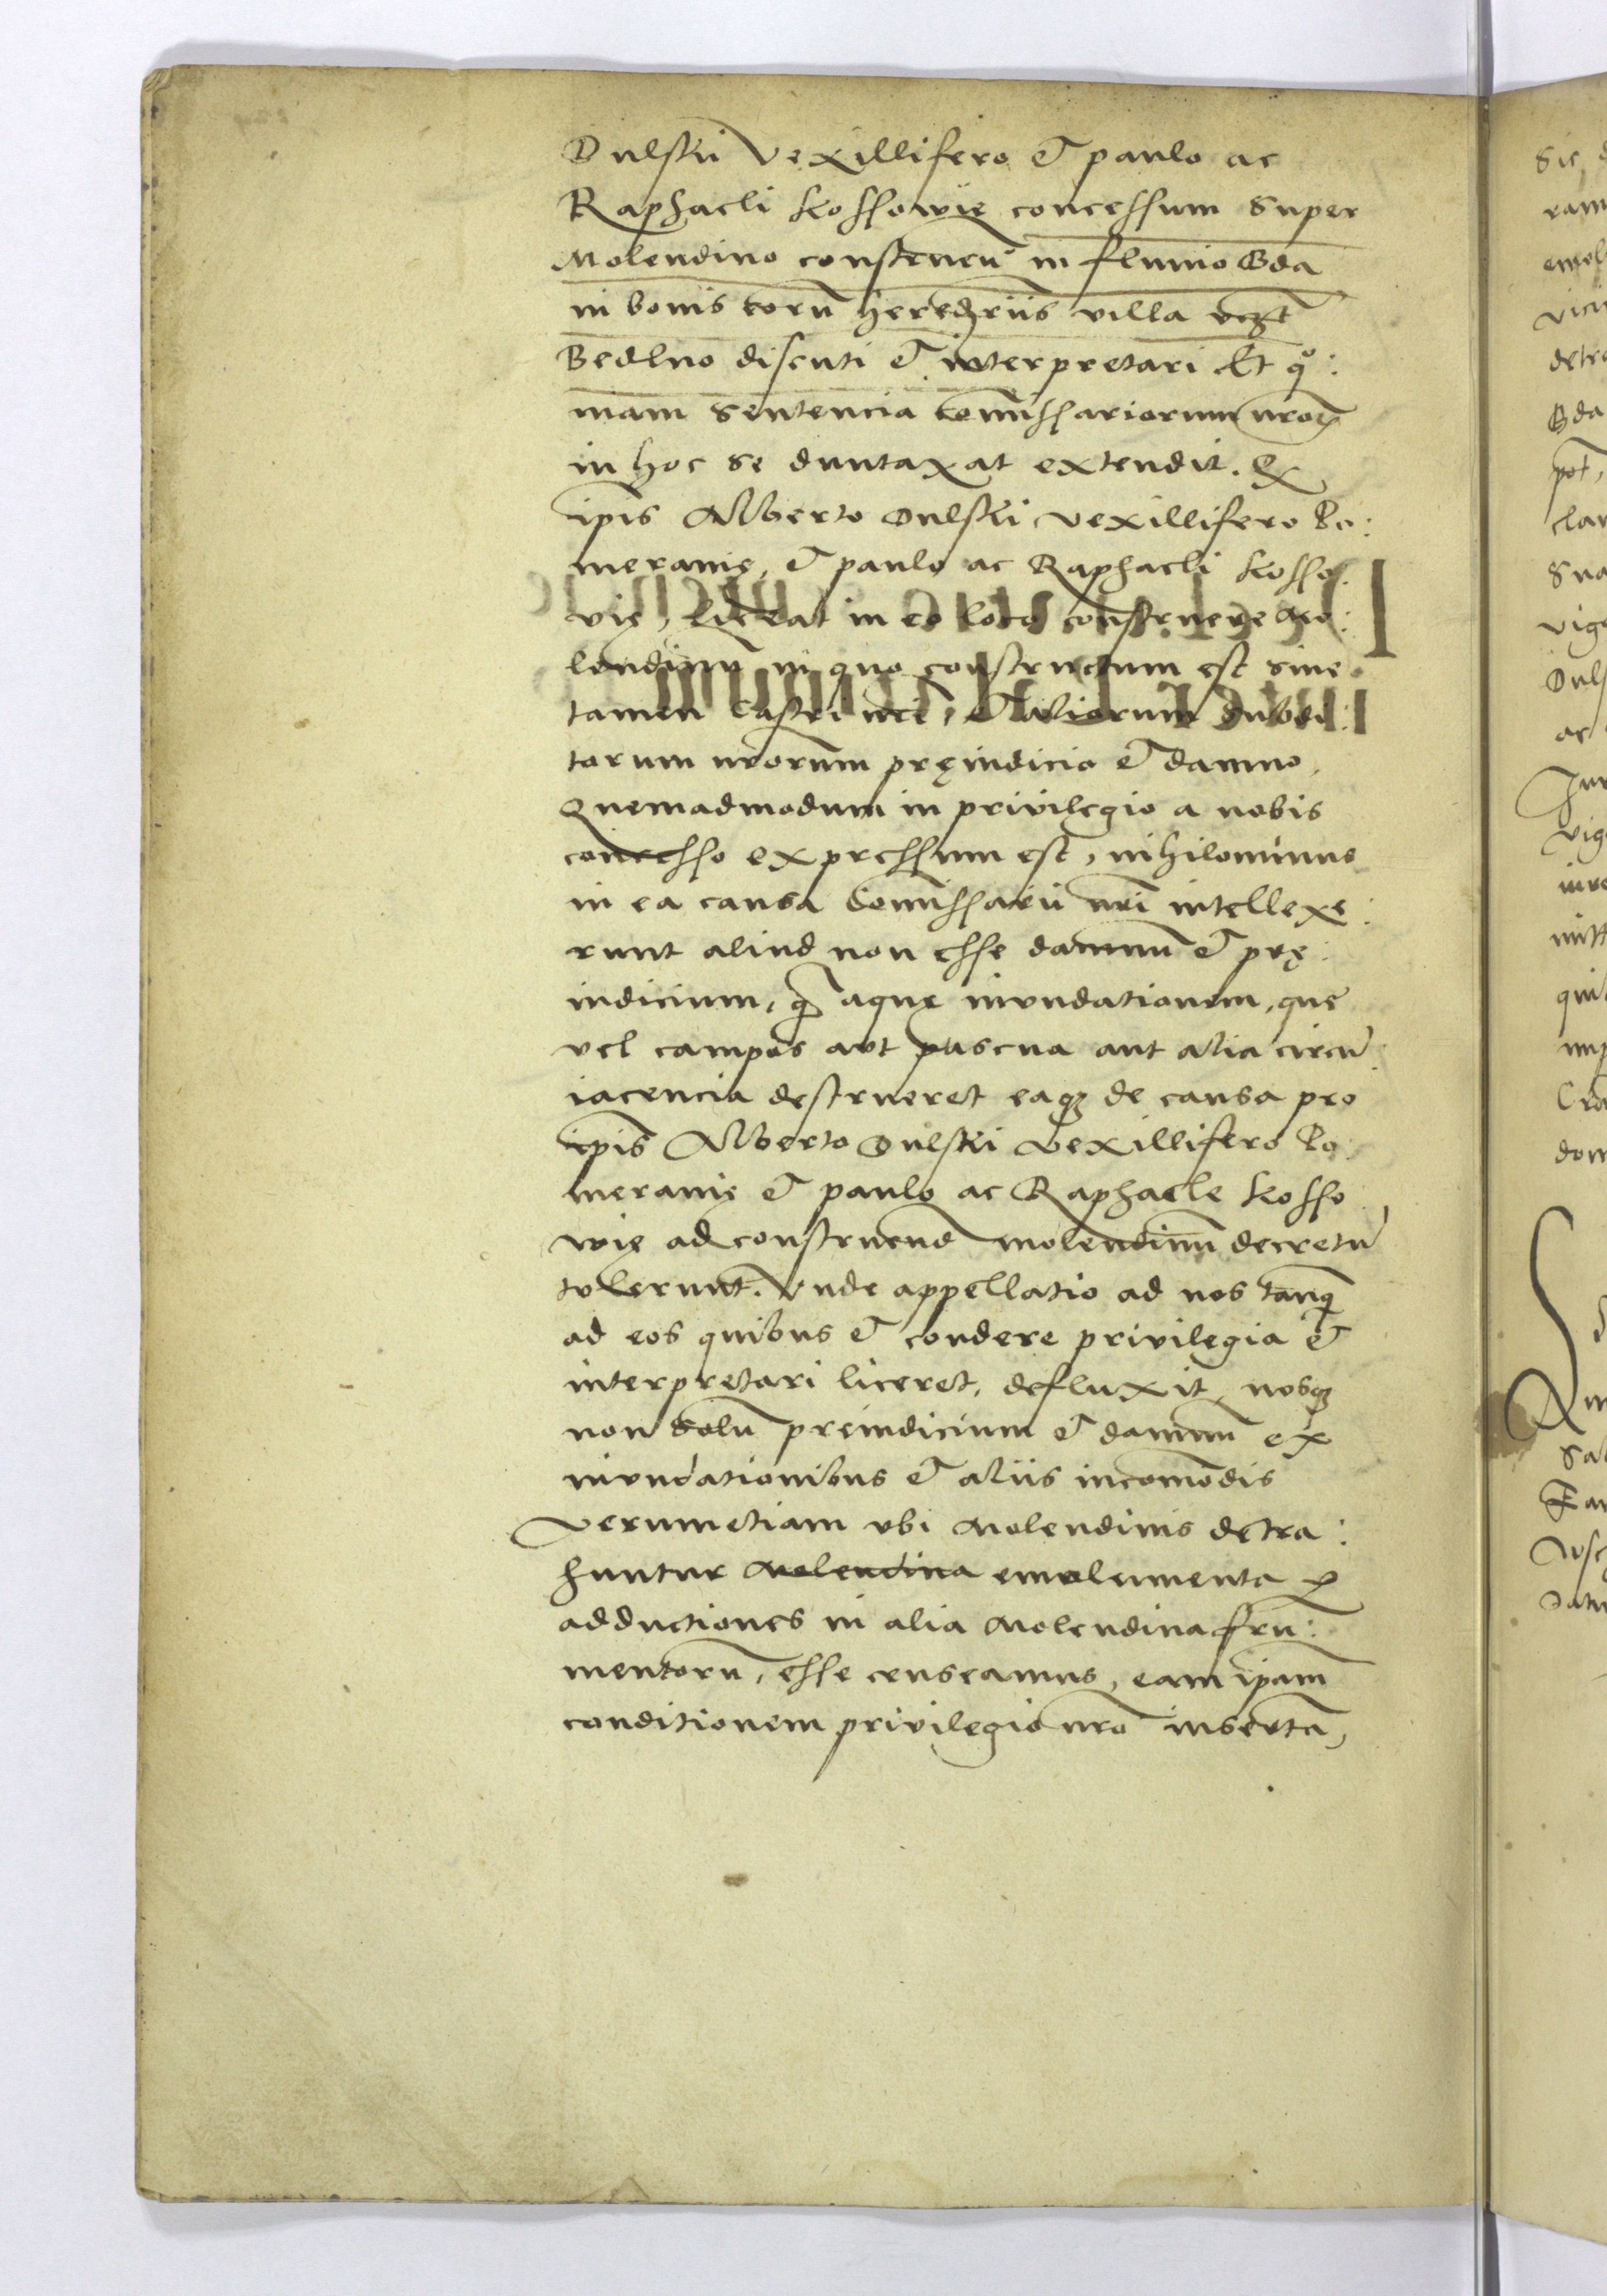 Dulskii vexillifero et paulo ac
Raphaeli kossowię concessum super
Molendino construen̄ in fluuio Bda
in bonis eorū heredriis villa
Bedlno discuti et interpretari Et qͦ:
niam sentencia comissariorum nroꝝ
in hoc se duntaxat extendit. Qꝫ
ip̄is Alberto Dulskii vexillifero Po:
meranię, et paulo ac Raphaeli kosso:
vię, liceat in eo loco construere Mo:
lendinū in quo constructum est sine
tamen Castri nrī, et aliorum subdi:
torum nrorum pręiudicio et damno,
Quemadmodum in privilegio a nobis
concesso expressum est, nihilominus
in ea causa Comissarii nrī intellexe:
runt aliud non esse damnū et prę:
iudicium, qͣ aquę inundationem, que
vel campos aut pascua aut alia circū:
iacencia destrueret eaqꝫ de causa pro
ip̄is Alberto Dulskii vexillifero Po:
meranię et paulo ac Raphaele kosso
wię ad construend molendinū decretū
tulerunt. Vnde appellatio ad nos tanqͣ
ad eos quibus et condere privilegia et
interpretari liceret, defluxit, nosqꝫ
non solū preiudicium et damnū ex
inundationibus et aliis incomodis
verumetiam ubi Molendinis detra:
huntur Molendina emolumenta ꝑ
adductiones in alia Molendina fru:
mentorū, esse censeamus, eam ipam
conditionem privilegio nro insertā,